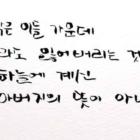 작은 이들 가운데
라도 잃어버리는 것
하늘에 계신
아버지의 뜻이 아니